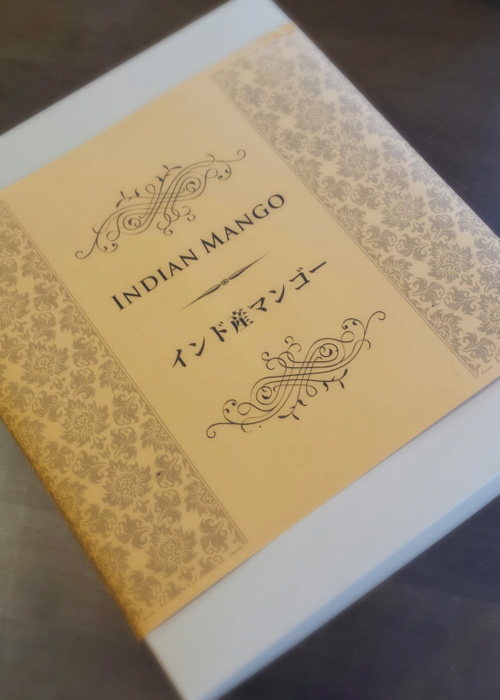 INDIAN MANGO
インド産マンゴー